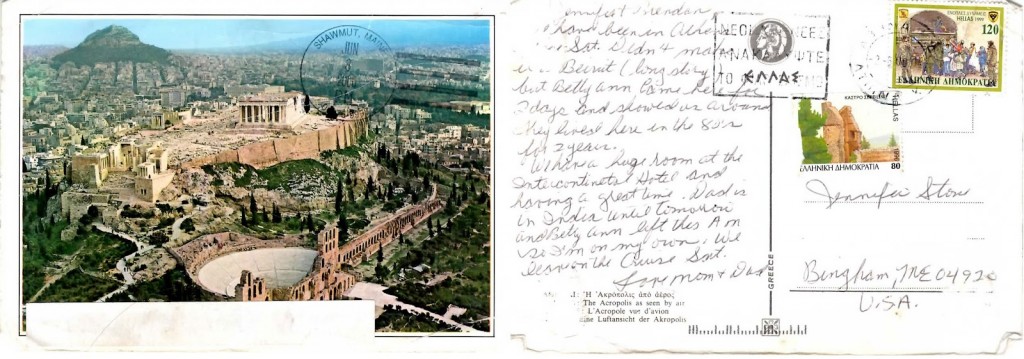 SHAWMUT, MAINE
JUN
Jennifer & Brendan
I have been in Athens
Sat. Didn't make
Beirut (long story)
but Betty Ann came here for
3 days and showed us around
They lived here in the 80's
for 2 years.
We have a huge room at the
Intercontinetal Hotel and
having a great time. Dad is
in India until tomorrow
and Betty Ann left this Am
so I'm on my own. We
leave on the Cruise Sat.
Love Mom & Dad
Ἡ Ἀκρόπολις ἀπό ἀέρος
The Acropolis as seen by air
L'Acropole vue d'avion
Luftansicht der Akropolis
GREECE
ΕΛΛΑΣ
HELLAS 1999
120
ΕΛΛΗΝΙΚΗ ΔΗΜΟΚΡΑΤΙΑ
ΚΑΣΤΡΟ
HELLAS
ΕΛΛΗΝΙΚΗ ΔΗΜΟΚΡΑΤΙΑ 80
Jennifer Stone
Bingham, ME 04920
U.S.A.